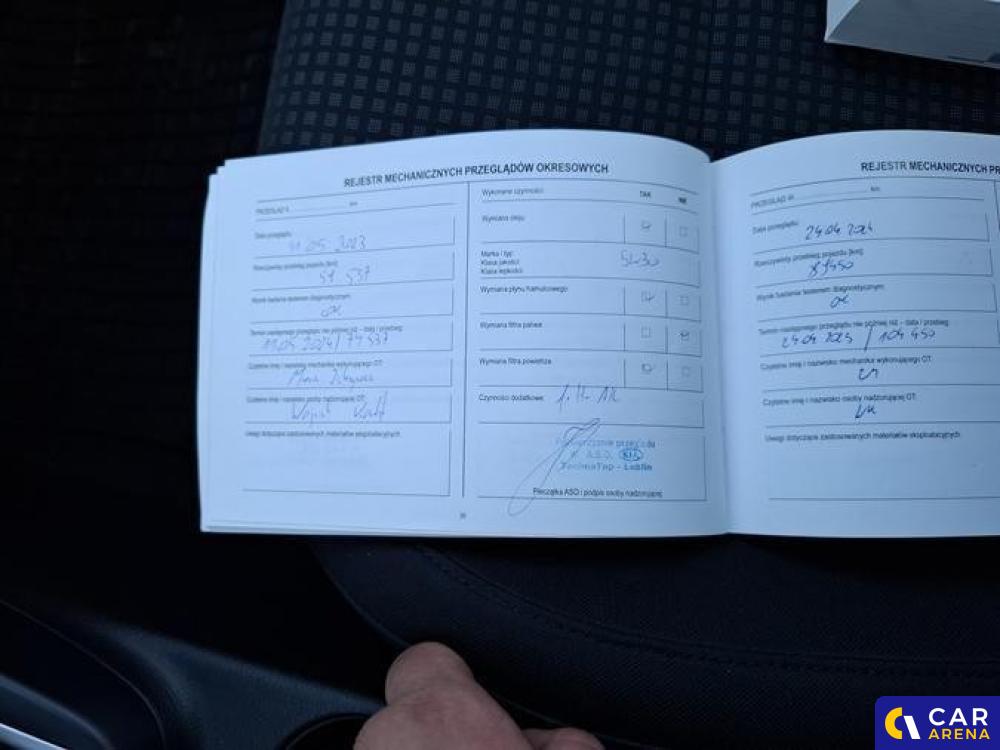 REJESTR MECHANICZNYCH PRZEGLĄDÓW OKRESOWYCH
PRZEGLĄD II km
Data przeglądu:
11.05.2023
Rzeczywisty przebieg pojazdu [km]:
51 537
Wynik badania testerem diagnostycznym:
ok
Termin następnego przeglądu nie później niż – data i przebieg:
11.05.2024 / 74 537
Czytelne imię i nazwisko mechanika wykonującego OT:
Czytelne imię i nazwisko osoby nadzorującej OT:
Uwagi dotyczące zastosowanych materiałów eksploatacyjnych:
Wykonane czynności: TAK NIE
Wymiana oleju:
Marka i typ:
Klasa jakości:
Klasa lepkości:
5W30
Wymiana płynu hamulcowego:
Wymiana filtra paliwa:
Wymiana filtra powietrza:
Czynności dodatkowe:
Potwierdzenie przeglądu
w A.S.O. KIA
TechnoTop - Lublin
Pieczątka ASO i podpis osoby nadzorującej
REJESTR MECHANICZNYCH
PRZEGLĄD III km
Data przeglądu:
24.04.2024
Rzeczywisty przebieg pojazdu [km]:
81450
Wynik badania testerem diagnostycznym:
ok
Termin następnego przeglądu nie później niż – data i przebieg:
24.04.2025 / 104 450
Czytelne imię i nazwisko mechanika wykonującego OT:
Czytelne imię i nazwisko osoby nadzorującej OT:
Uwagi dotyczące zastosowanych materiałów eksploatacyjnych:
CAR
ARENA